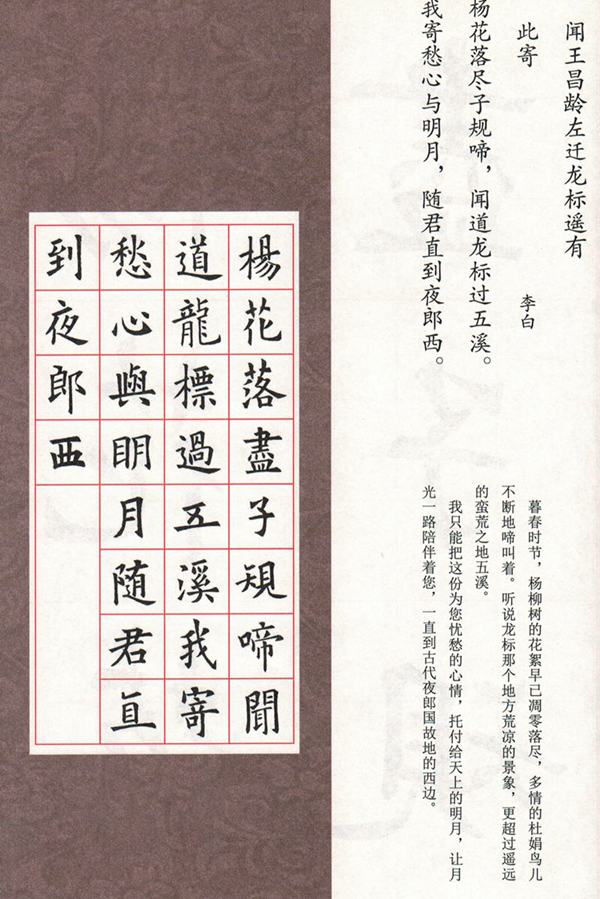 闻王昌龄左迁龙标遥有
此寄
李白
杨花落尽子规啼，闻道龙标过五溪。
我寄愁心与明月，随君直到夜郎西。
暮春时节，杨柳树的花絮早已凋零落尽，多情的杜娟鸟儿
不断地啼叫着。听说龙标那个地方荒凉的景象，更超过遥远
的蛮荒之地五溪。
我只能把这份为您忧愁的心情，托付给天上的明月，让月
光一路陪伴着您，一直到古代夜郎国故地的西边。
楊花落盡子規啼聞
道龍標過五溪我寄
愁心與明月随君直
到夜郎西